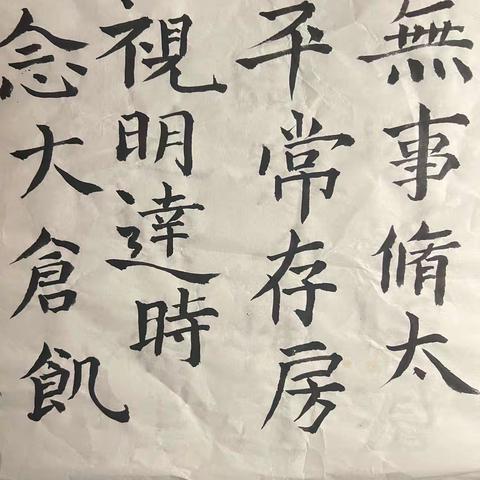 無事脩太
平常存房
視明達時
念大倉飢